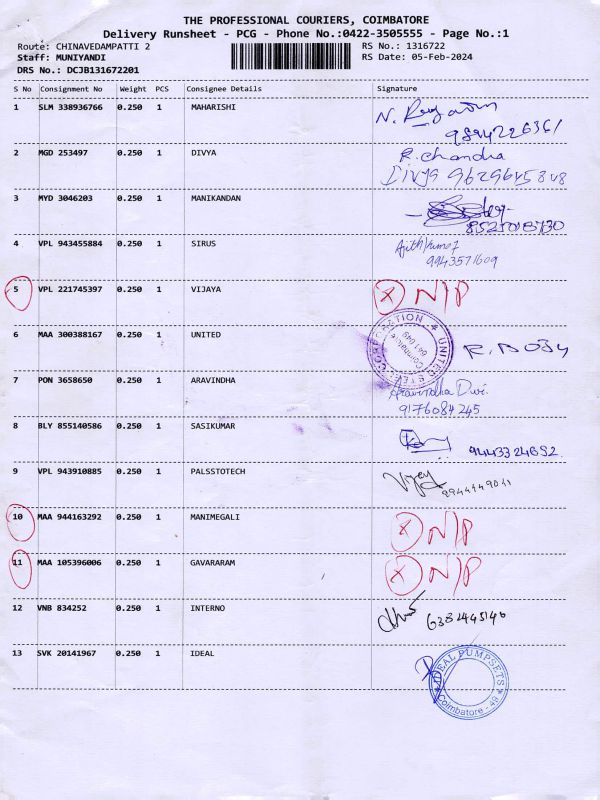 THE PROFESSIONAL COURIERS, COIMBATORE
Delivery Runsheet - PCG - Phone No.:0422-3505555 - Page No.:1
Route: CHINAVEDAMPATTI 2 RS No.: 1316722
Staff: MUNIYANDI RS Date: 05-Feb-2024
DRS No.: DCJB131672201
S No Consignment No Weight PCS Consignee Details Signature
1 SLM 338936766 0.250 1 MAHARISHI N.
9894226361
2 MGD 253497 0.250 1 DIVYA R. Chandra
Divya 9629645848
3 MYD 3046203 0.250 1 MANIKANDAN
4 VPL 943455884 0.250 1 SIRUS Ajith Kumar
9943571609
5 VPL 221745397 0.250 1 VIJAYA X N/P
6 MAA 300388167 0.250 1 UNITED UNITED STEEL CORPORATION Coimbatore 641 049
7 PON 3658650 0.250 1 ARAVINDHA Aravindha Dvi.
9176084245
8 BLY 855140586 0.250 1 SASIKUMAR
9443324652.
9 VPL 943910885 0.250 1 PALSSTOTECH Vijay
10 MAA 944163292 0.250 1 MANIMEGALI X N/P
11 MAA 105396006 0.250 1 GAVARARAM X N/P
12 VNB 834252 0.250 1 INTERNO 6382445146
13 SVK 20141967 0.250 1 IDEAL IDEAL PUMPSETS Coimbatore - 49